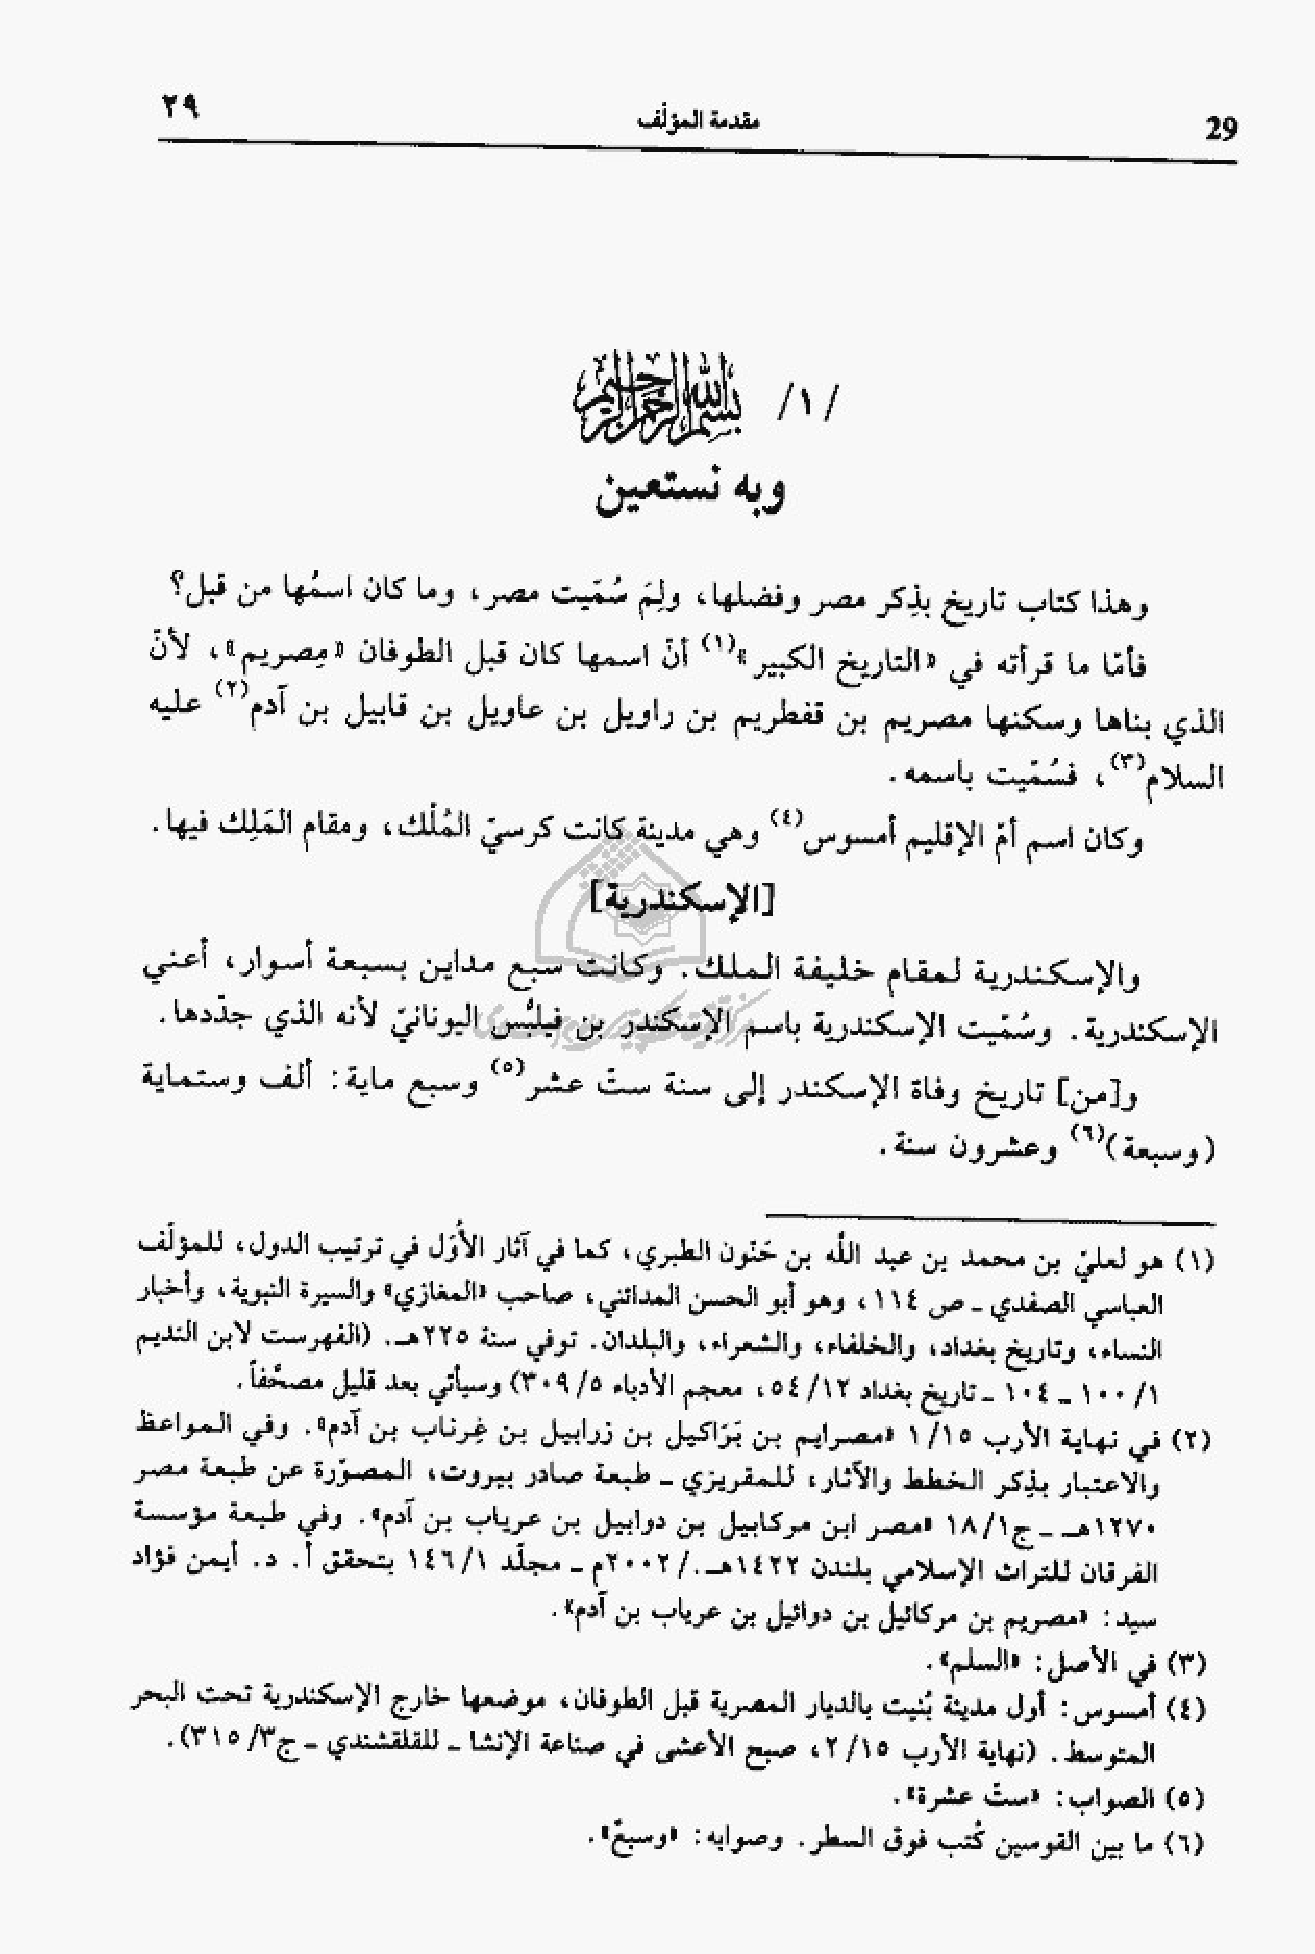 29 مقدمة المؤلّف ٢٩
/١/ بسم الله الرحمن الرحيم
وبه نستعين
وهذا كتاب تاريخ بذِكر مصر وفضلها، ولِمَ سُمّيت مصر، وما كان اسمُها من قبل؟
فأمّا ما قرأته في «التاريخ الكبير»(١) أنّ اسمها كان قبل الطوفان «مِصريم»، لأنّ
الذي بناها وسكنها مصريم بن قفطريم بن راويل بن عاويل بن قابيل بن آدم(٢) عليه
السلام(٣)، فسُمّيت باسمه.
وكان اسم أمّ الإقليم أمسوس(٤) وهي مدينة كانت كرسيّ المُلْك، ومقام المَلِك فيها.
[الإسكندرية]
والإسكندرية لمقام خليفة الملك. وكانت سبع مداين بسبعة أسوار، أعني
الإسكندرية. وسُمّيت الإسكندرية باسم الإسكندر بن فيلبُّس اليونانيّ لأنه الذي جدّدها.
و[من] تاريخ وفاة الإسكندر إلى سنة ستّ عشر(٥) وسبع ماية: ألف وستماية
(وسبعة)(٦) وعشرون سنة.
(١) هو لعليّ بن محمد بن عبد الله بن حَنّون الطبري، كما في آثار الأُوَل في ترتيب الدول، للمؤلّف
العباسي الصفدي ـ ص ١١٤، وهو أبو الحسن المدائني، صاحب «المغازي» والسيرة النبوية، وأخبار
النساء، وتاريخ بغداد، والخلفاء، والشعراء، والبلدان. توفي سنة ٢٢٥هـ. (الفهرست لابن النديم
١/ ١٠٠ ـ ١٠٤ ـ تاريخ بغداد ١٢/ ٥٤، معجم الأدباء ٥/ ٣٠٩) وسيأتي بعد قليل مصحّفاً.
(٢) في نهاية الأرب ١٥/ ١ «مصرايم بن بَرّاكيل بن زرابيل بن غِرناب بن آدم». وفي المواعظ
والاعتبار بذِكر الخطط والآثار، للمقريزي ـ طبعة صادر بيروت، المصوّرة عن طبعة مصر
١٢٧٠هـ ـ ج١/ ١٨ «مصر ابن مركابيل بن دوابيل بن عرياب بن آدم». وفي طبعة مؤسسة
الفرقان للتراث الإسلامي بلندن ١٤٢٢هـ./ ٢٠٠٢م ـ مجلّد ١/ ١٤٦ بتحقق أ. د. أيمن فؤاد
سيد: «مصريم بن مركائيل بن دوائيل بن عرياب بن آدم».
(٣) في الأصل: «السلم».
(٤) أمسوس: أول مدينة بُنيت بالديار المصرية قبل الطوفان، موضعها خارج الإسكندرية تحت البحر
المتوسط. (نهاية الأرب ١٥/ ٢، صبح الأعشى في صناعة الإنشا ـ للقلقشندي ـ ج٣/ ٣١٥).
(٥) الصواب: «ستّ عشرة».
(٦) ما بين القوسين كُتب فوق السطر. وصوابه: «وسبعٌ».